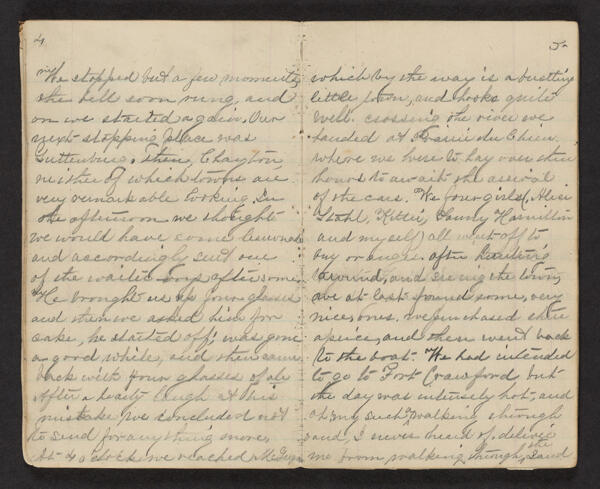 4
We stopped but a few moments
the bell soon rung, and
on we started again. Our
next stopping place was
Guttenburg. Then, Clayton
neither of which towns are
very remarkable looking. In
the afternoon we thought
we would have some lemonade
and accordingly sent one
of the waiter boys after some,
He brought us up four glasses
and then we asked him for
cake, he started off, was gone
a good while, and then came
back with four glasses of ale
After a hearty laugh at his
mistake we concluded not
to send for any thing more.
At 4 o'clock we reached McGregor
5
which by the way is a bustling
little town, and looks quite
well. crossing the river we
landed at Prairie du Chien.
where we were to lay over three
hours to await the arrival
of the cars. We four girls (Alice
Stahl, Kittie, Fanny Hamilton
and myself) all went off to
buy oranges, after hunting
around, and seeing the town,
we at last found some, very
nice ones. we purchased three
apiece, and then went back
to the boat. We had intended
to go to Fort Crawford but
the day was intensely hot, and
oh my such walking through
sand, I never heard of, deliver
me from walking through the sand